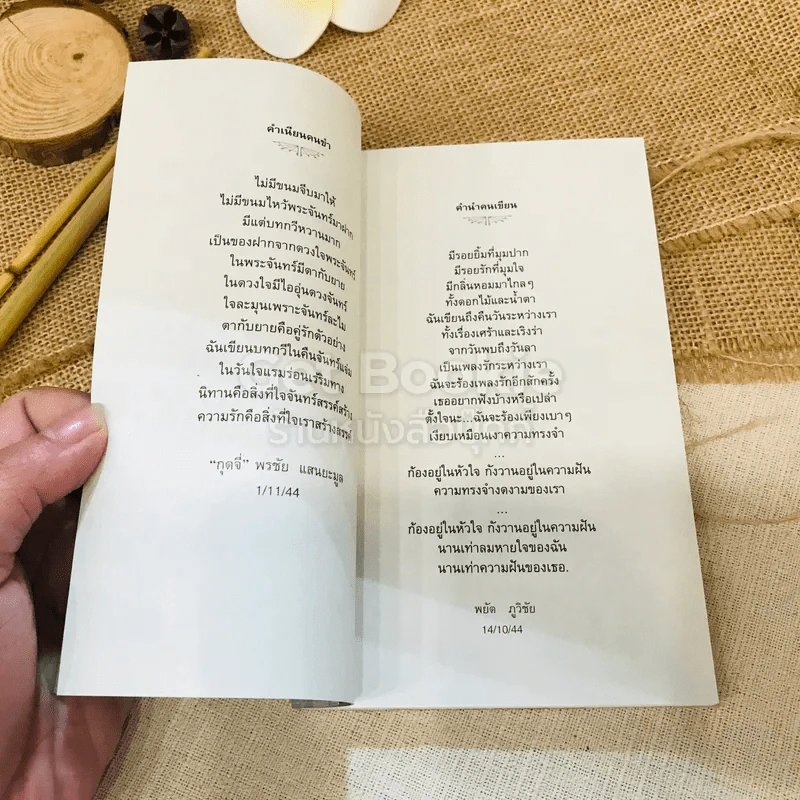 คำเนียนคนขำ
ไม่มีขนมจีบมาให้
ไม่มีขนมไหว้พระจันทร์มาฝาก
มีแต่บทกวีหวานมาก
เป็นของฝากจากดวงใจพระจันทร์
ในพระจันทร์มีตากับยาย
ในดวงใจมีไออุ่นดวงจันทร์
ใจละมุนเพราะจันทร์ละไม
ตากับยายคือคู่รักตัวอย่าง
ฉันเขียนบทกวีในคืนจันทร์แจ่ม
ในวันใจแรมร่อนเร่ริมทาง
นิทานคือสิ่งที่ใจจันทร์สรรค์สร้าง
ความรักคือสิ่งที่ใจเราสร้างสรรค์
“กุดจี่” พรชัย แสนยะมูล
1/11/44
คำนำคนเขียน
มีรอยยิ้มที่มุมปาก
มีรอยรักที่มุมใจ
มีกลิ่นหอมมาไกลๆ
ทั้งดอกไม้และน้ำตา
ฉันเขียนถึงคืนวันระหว่างเรา
ทั้งเรื่องเศร้าและเริงร่า
จากวันพบถึงวันลา
เป็นเพลงรักระหว่างเรา
ฉันจะร้องเพลงรักอีกสักครั้ง
เธออยากฟังบ้างหรือเปล่า
ตั้งใจนะ...ฉันจะร้องเพียงเบาๆ
เงียบเหมือนเงาความทรงจำ
...
ก้องอยู่ในหัวใจ กังวานอยู่ในความฝัน
ความทรงจำงดงามของเรา
...
ก้องอยู่ในหัวใจ กังวานอยู่ในความฝัน
นานเท่าลมหายใจของฉัน
นานเท่าความฝันของเธอ.
พยัต ภูวิชัย
14/10/44